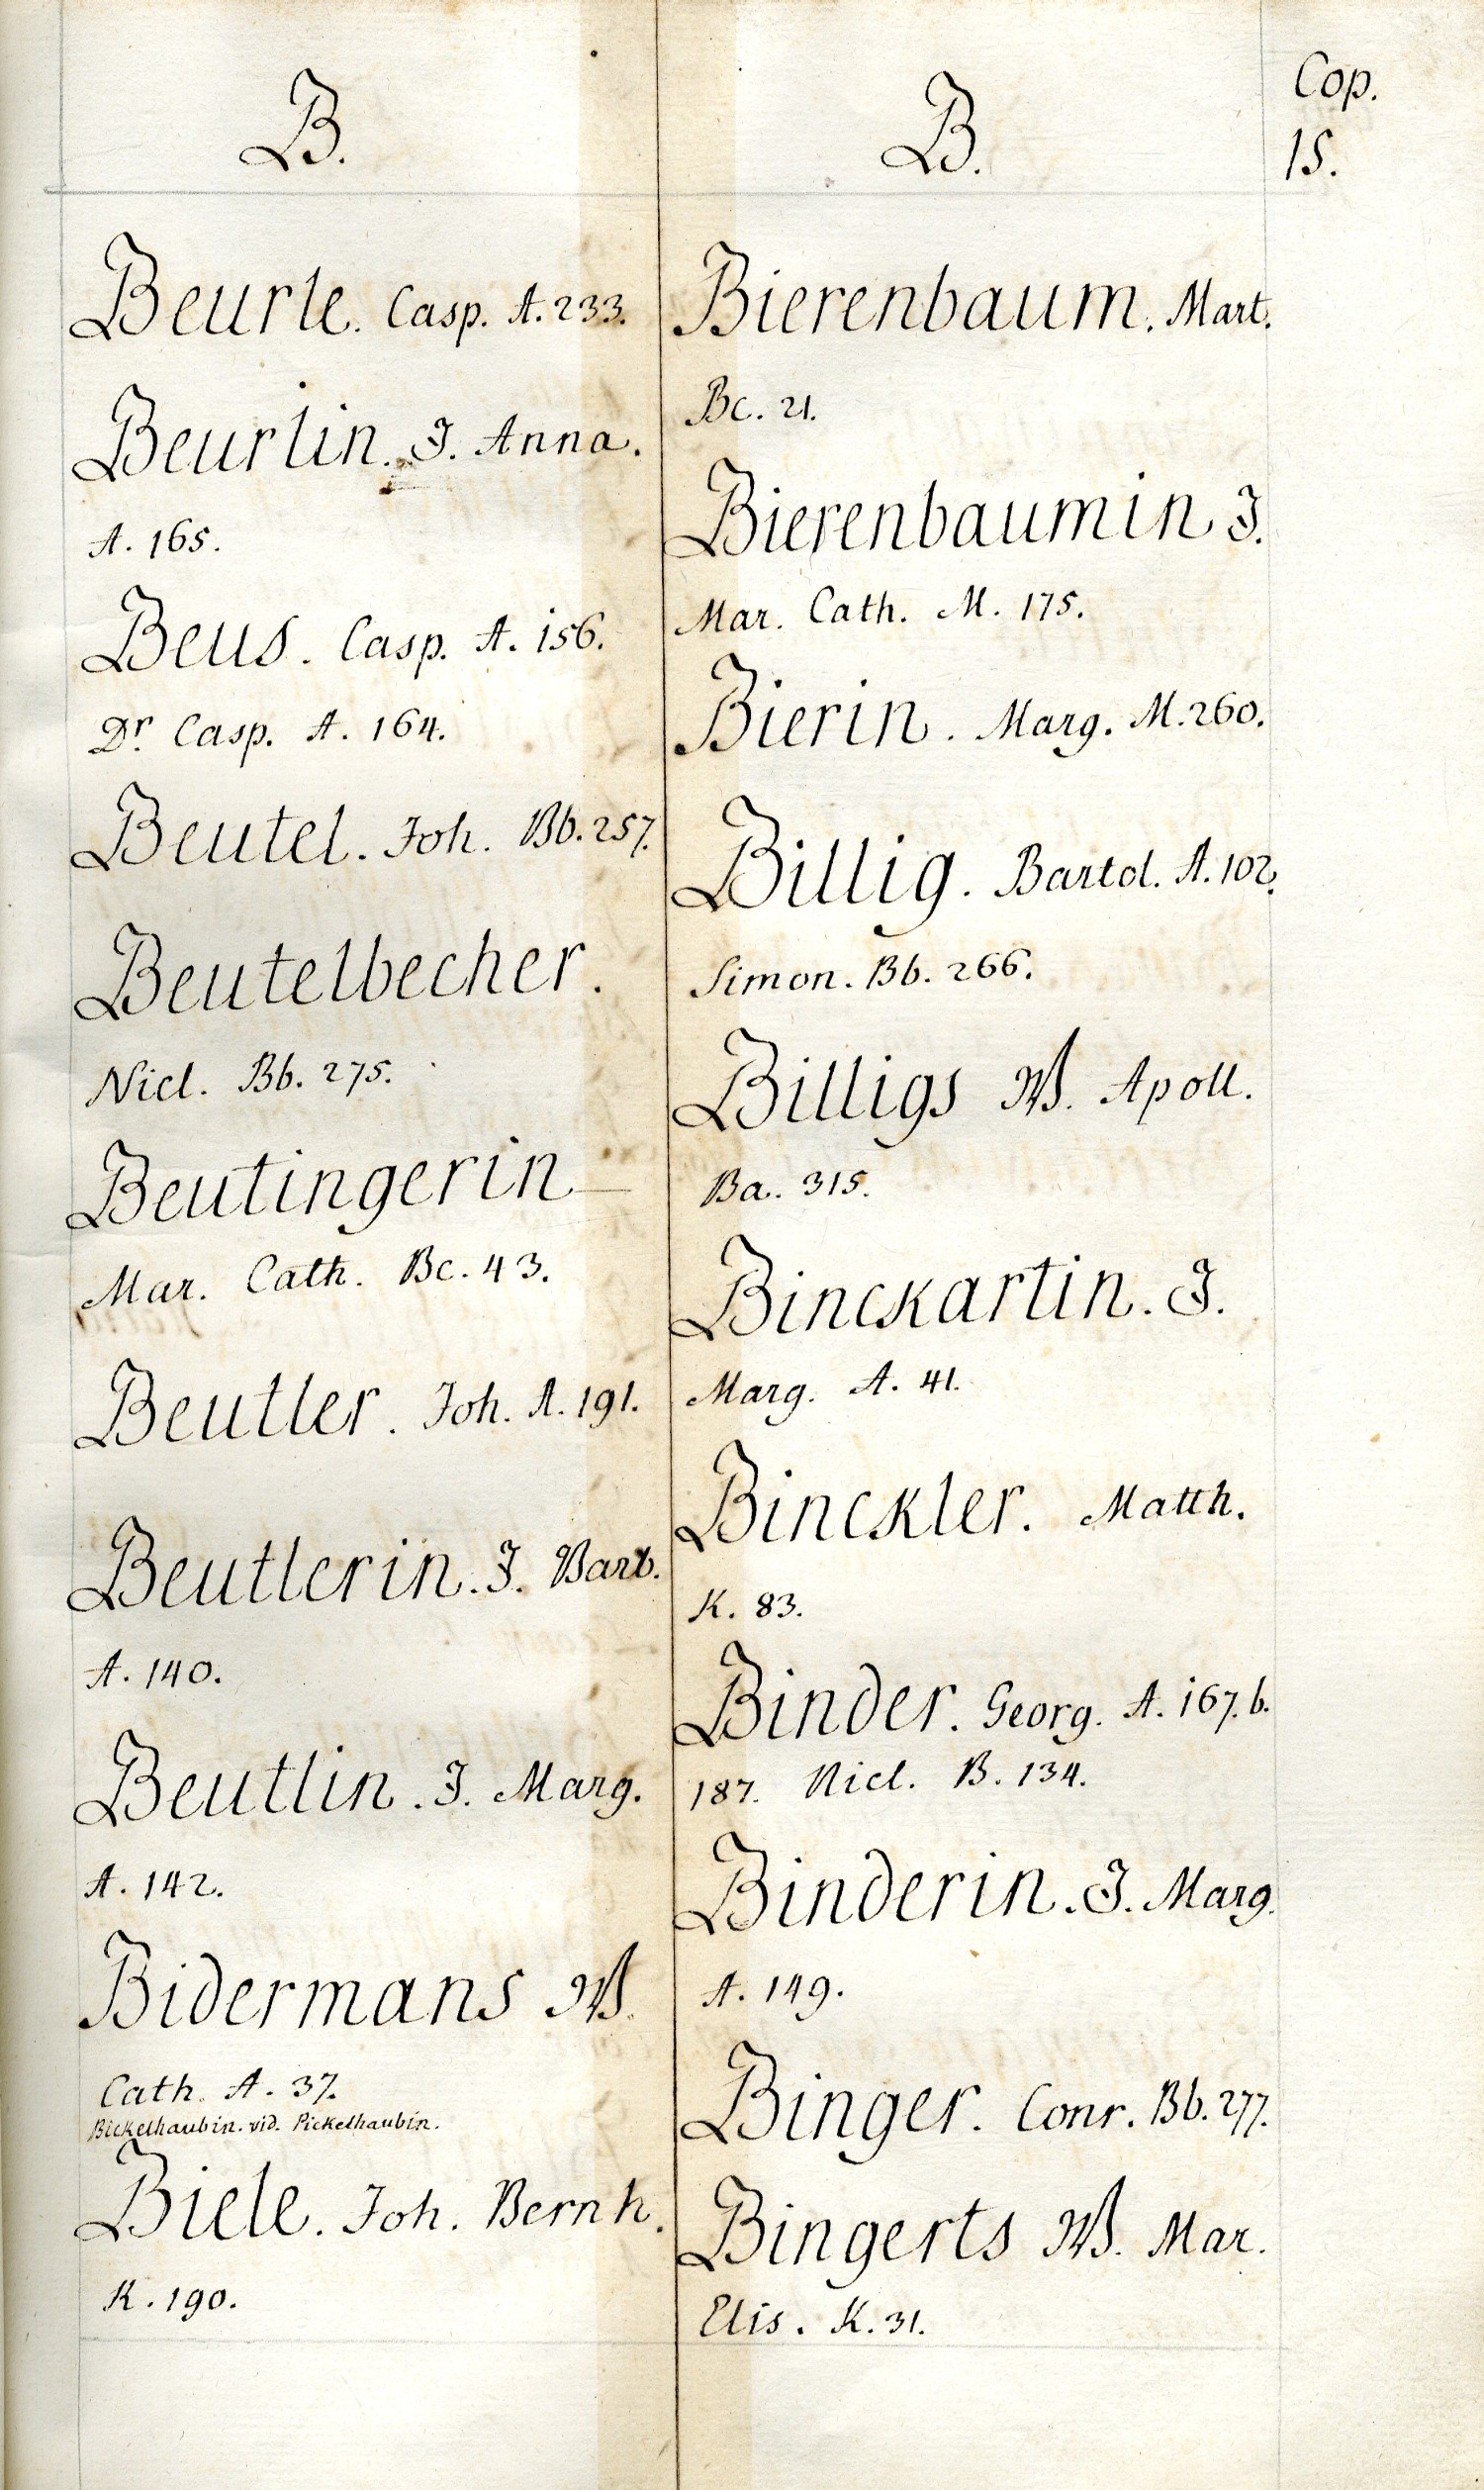 Cop.
15.
B.
Beurle. Casp. A. 233.
Beurlin. J. Anna.
A. 165.
Beus. Casp. A. 156.
Dr. Casp. A. 164.
Beutel. Joh. Bb. 257.
Beutelbecher.
Nicl. Bb. 275.
Beutingerin
Mar. Cath. Bc. 43.
Beutler. Joh. A. 191.
Beutlerin. J. Barb.
A. 140.
Beutlin. J. Marg.
A. 142.
Bidermans W.
Cath. A. 37.
Bickelhaubin. vid. Pickelhaubin.
Biele. Joh. Bernh.
K. 190.
B.
Bierenbaum. Mart.
Bc. 21.
Bierenbaumin J.
Mar. Cath. M. 175.
Bierin. Marg. M. 260.
Billig. Bartol. A. 102.
Simon. Bb. 266.
Billigs W. Apoll.
Ba. 315.
Binckartin. J.
Marg. A. 41.
Binckler. Matth.
K. 83.
Binder. Georg. A. 167. b.
187. Nicl. B. 134.
Binderin. J. Marg.
A. 149.
Binger. Conr. Bb. 277.
Bingerts W. Mar.
Elis. K. 31.